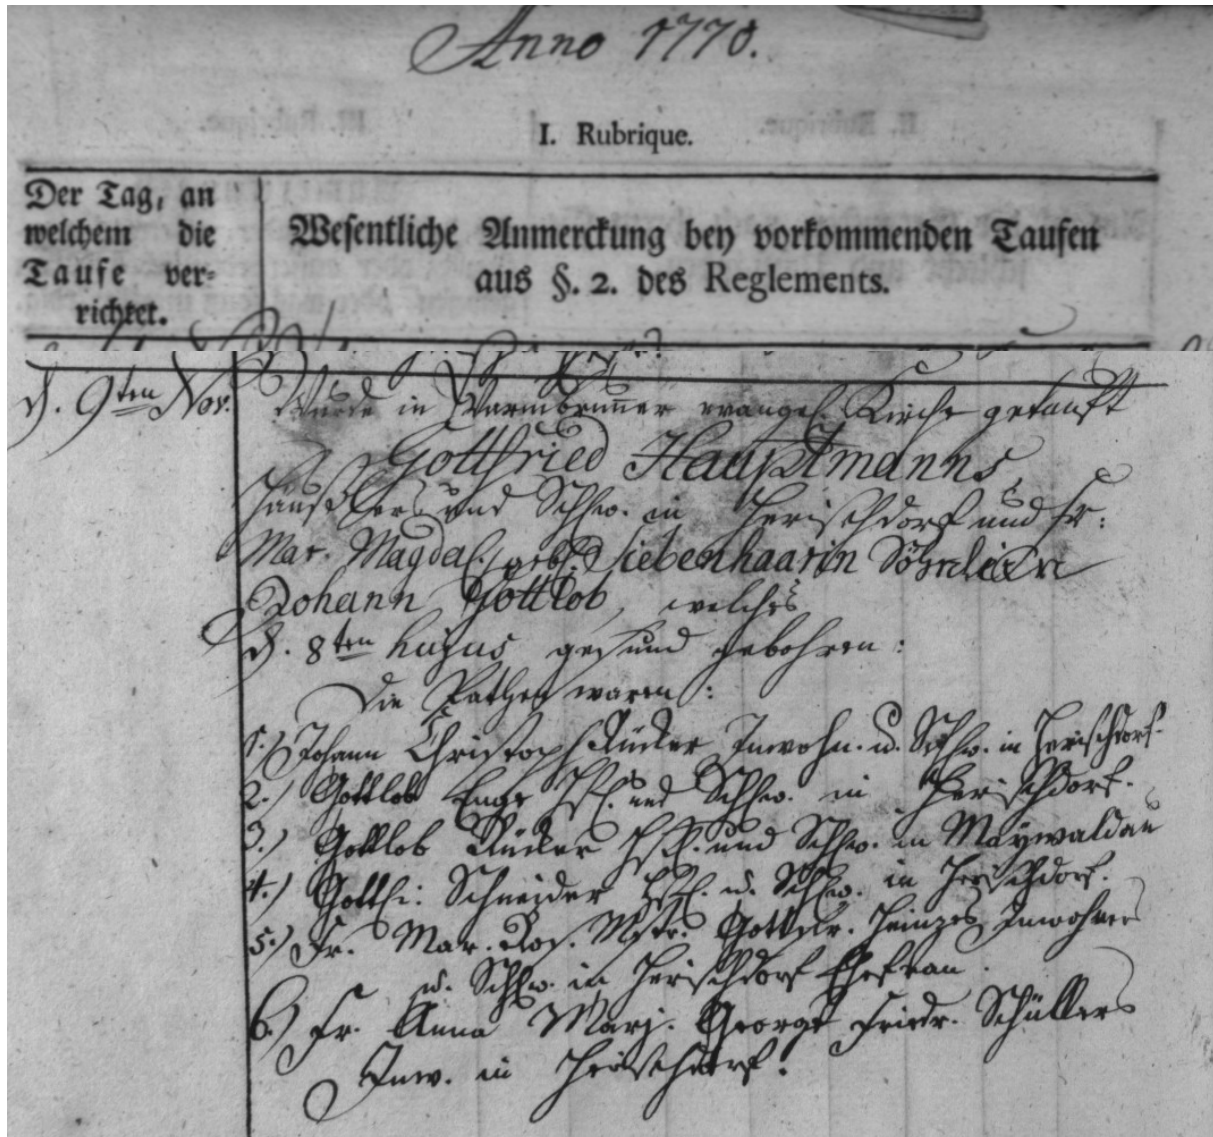 Anno 1770.
I. Rubrique.
Der Tag, an
welchem die
Taufe ver-
richtet.
Wesentliche Anmerckung bey vorkommenden Taufen
aus §. 2. des Reglements.
d. 9ten Nov.
Wurde in Warmbrunner evangel. Kirche getauft
Gottfried Hauptmanns
Häußlers und Schlw. in Herischdorf und Fr.
Mar. Magdal. geb. Siebenhaarin Söhnlein
Johann Gottlob, welches
d. 8ten hujus gesund gebohren:
Die Pathen waren:
1.) Johann Christoph Rücker Inwohn. u. Schlw. in Herischdorf.
2.) Gottlob Enge Hßl. und Schlw. in Herischdorf.
3.) Gottlob Rücker Hßl. und Schlw. in Maywaldau
4.) Gottfr: Schneider Hßl. u. Schlw. in Herischdorf.
5.) Fr. Mar. Ros. Mstr. Heinzes Inwohners
u. Schlw. in Herischdorf Ehefrau.
6.) Fr. Anna Mari. George Friedr. Schüllers
Inw. in Herischdorf.